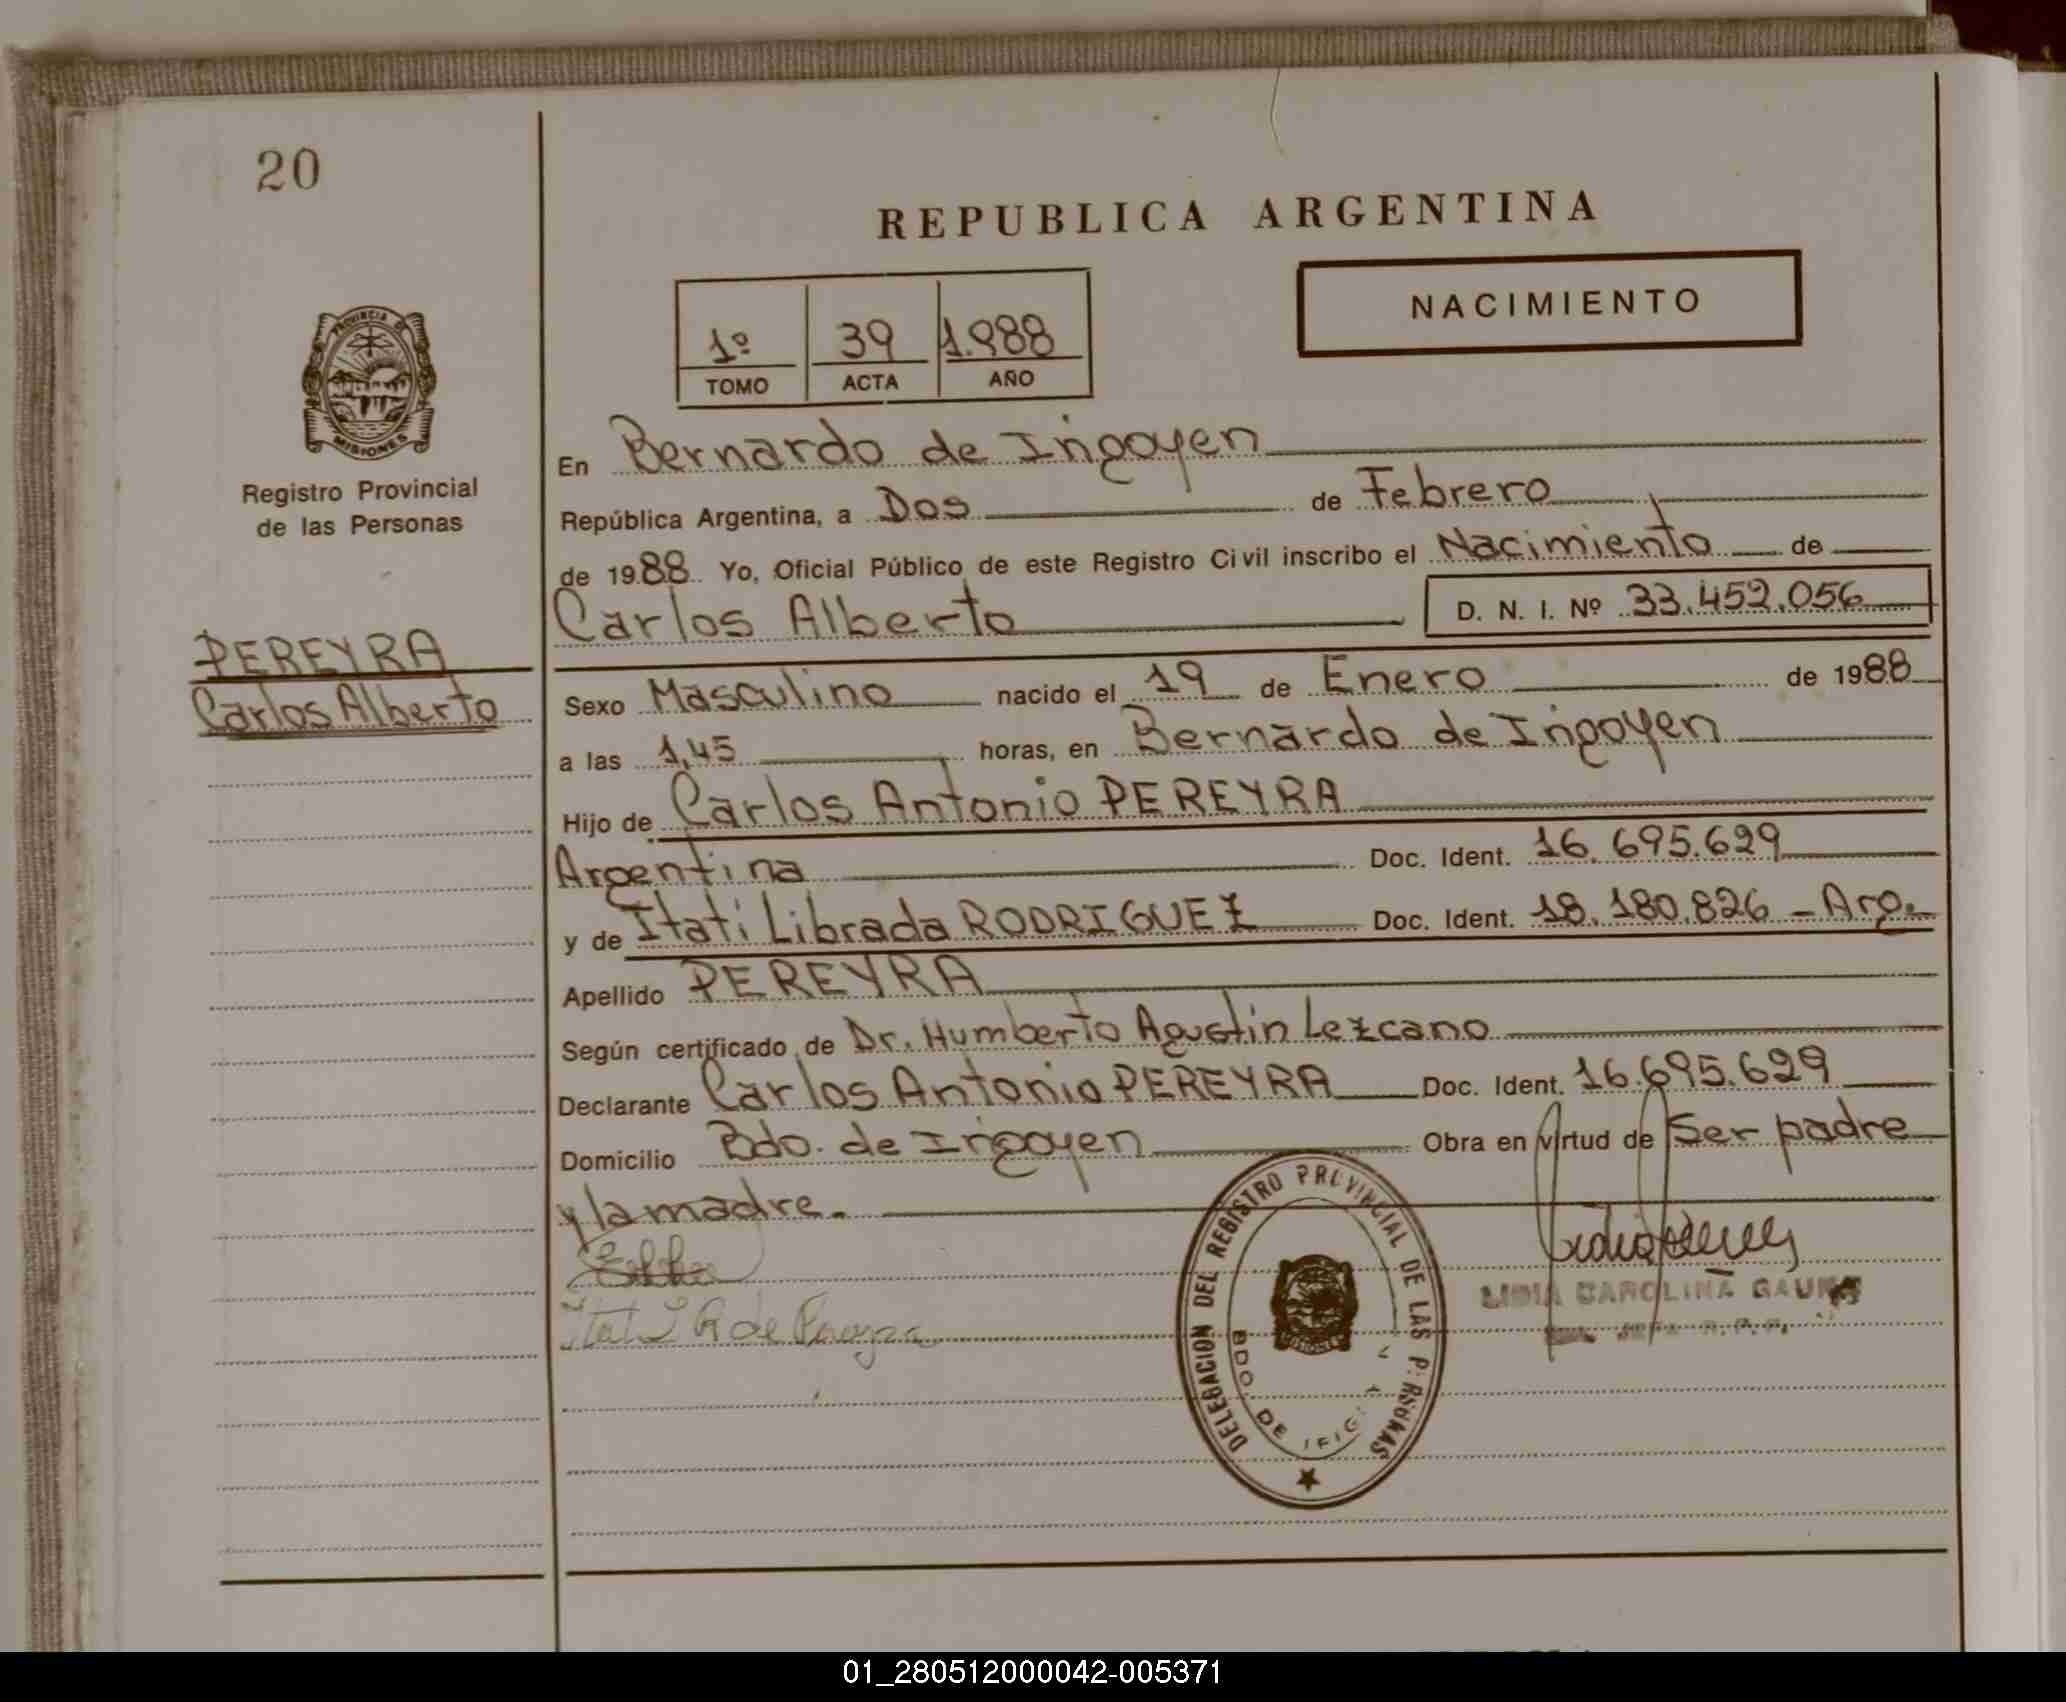 20
REPUBLICA ARGENTINA
NACIMIENTO
1º 39 1.988
TOMO ACTA AÑO
PROVINCIA DE
MISIONES
Registro Provincial
de las Personas
PEREYRA
Carlos Alberto
En Bernardo de Irigoyen
República Argentina, a Dos de Febrero
de 1988 Yo, Oficial Público de este Registro Civil inscribo el Nacimiento de
Carlos Alberto D. N. I. Nº 33.452.056
Sexo Masculino nacido el 19 de Enero de 1988
a las 1,45 horas, en Bernardo de Irigoyen
Hijo de Carlos Antonio PEREYRA
Argentina Doc. Ident. 16.695.629
y de Itati Librada RODRIGUEZ Doc. Ident. 18.180.826 - Arg.
Apellido PEREYRA
Según certificado de Dr. Humberto Agustin Lezcano
Declarante Carlos Antonio PEREYRA Doc. Ident. 16.695.629
Domicilio Bdo. de Irigoyen Obra en virtud de Ser padre
y la madre.
Itati R de Pereyra
DELEGACION DEL REGISTRO PROVINCIAL DE LAS PERSONAS
BDO. DE IRIG
LIDIA CAROLINA GAUNA
JEFA R.P.P.
01_280512000042-005371